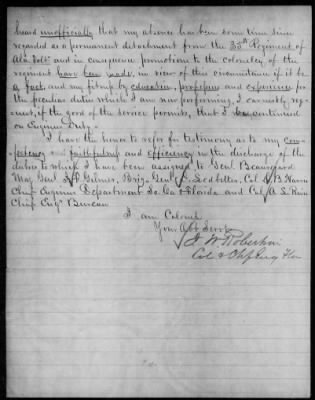 heard unofficially that my absence has been some time since
regarded as a permanent detachment from the 35th Regiment of
Ala Vols and in consequence promotions to the colonelcy of the
regiment have been made, in view of this circumstance if it be
a fact and my fitness by education, profession and experience for
the peculiar duties which I am now performing, I earnestly req-
uest, if the good of the service permits, that I be continued
on Engineer Duty.
I have the honor to refer for testimony as to my com-
petency and faithfulness and efficiency in the discharge of the
duties to which I have been assigned to Genl Beauregard
Maj Genl J F Gilmer, Brig. Genl D. Leadbetter, Col D. B. Harris
Chief Engineer Department So. Ca & Florida and Col A L Rives
Chief Engr Bureau
I am Colonel
Your Obt Servt
J W Robertson
Col & Chf Engr